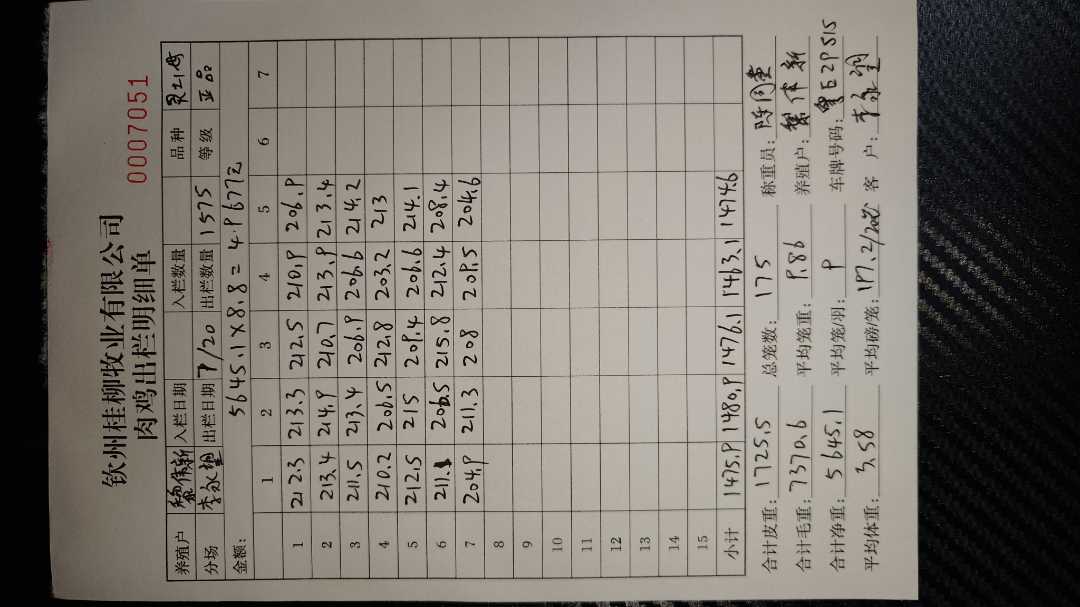 钦州桂柳牧业有限公司
肉鸡出栏明细单 0007051
养殖户 伟新 入栏日期 入栏数量 品种
分场 李永 出栏日期 7/20 出栏数量 1575 等级 正品
金额: 5645.1×8.8=4.9677元
1 2 3 4 5 6 7
1 212.3 213.3 212.5 210.9 206.9
2 213.4 214.9 210.7 213.9 213.4
3 211.5 213.4 206.9 206.6 214.2
4 210.2 206.5 212.8 203.2 213
5 212.5 215 209.4 206.6 214.1
6 211.1 206.5 215.8 212.4 208.4
7 204.9 211.3 208 209.5 204.6
8
9
10
11
12
13
14
15
小计 1475.9 1480.9 1476.1 1463.1 1474.6
合计皮重: 1725.5 总笼数: 175 称重员: 陈同
合计毛重: 7370.6 平均笼重: 9.86 养殖户: 伟新
合计净重: 5645.1 平均笼/羽: 9 车牌号码:
平均体重: 3.58 平均磅/笼: 197.2/20 客 户: 李永